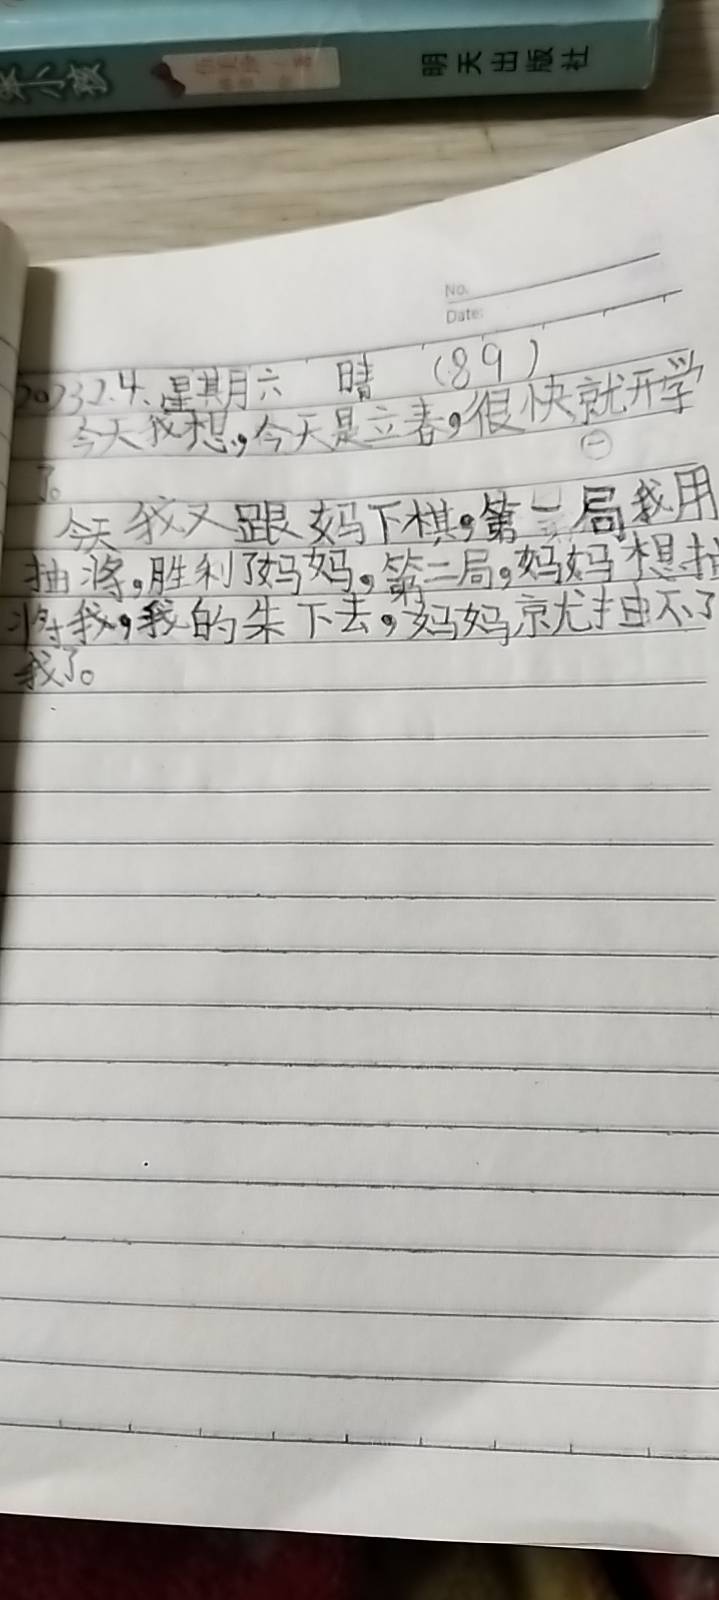 明天出版社
No.
Date:
2023.2.4.星期六 晴 (89)
今天我想,今天是立春,很快就开学
㊀
了。
今天我又跟妈下棋,第一局我用
抽将,胜利了妈妈,第二局,妈妈想抽
将我,我的朱下去,妈妈就抽不了
我了。